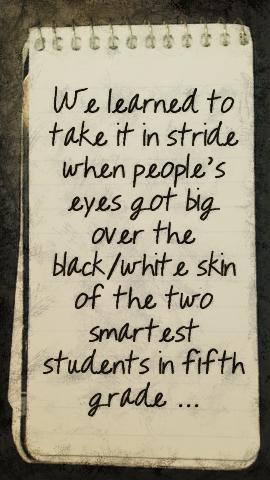 We learned to
take it in stride
when people's
eyes got big
over the
black/white skin
of the two
smartest
students in fifth
grade ...